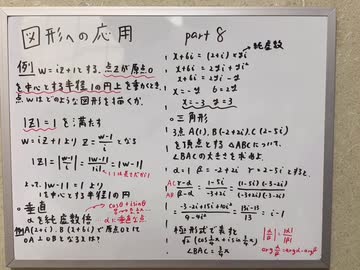 図形への応用 part 8
例 w=iz+1とする。点zが原点O
を中心とする半径1の円上を動くとき、
点wはどのような図形を描くか。
|z|=1 を満たす
w=iz+1より z=(w-1)/i となる
|z|=|(w-1)/i|=|w-1|/|i|=|w-1|
よって、|w-1|=1より
1を中心とする半径1の円
○垂直
αを純虚数倍
αに垂直な点
例 A(2+i), B(x+6i)で原点Oとして
OA⊥OBとなるxは?
x+6i=(2+i)×yi
純虚数
x+6i=2yi+yi²
x+6i=2yi-y
x=-y 6=2y
x=-3 y=3
○三角形
3点A(1), B(-2+2i), C(2-5i)
を頂点とする△ABCについて、
∠BACの大きさを求めよ。
α=1 β=-2+2i γ=2-5iとすると、
AC AB (γ-α)/(β-α)=(1-5i)/(-3+2i)=(1-5i)(-3-2i)/(-3+2i)(-3-2i)
=(-3-2i+15i+10i²)/(9-4i²)=(13i-13)/13=i-1
極形式で表すと
√2(cos 3/4π+i sin 3/4π)
∠BAC=3/4π
|α/β|=|α|/|β|
arg α/β=argα-argβ